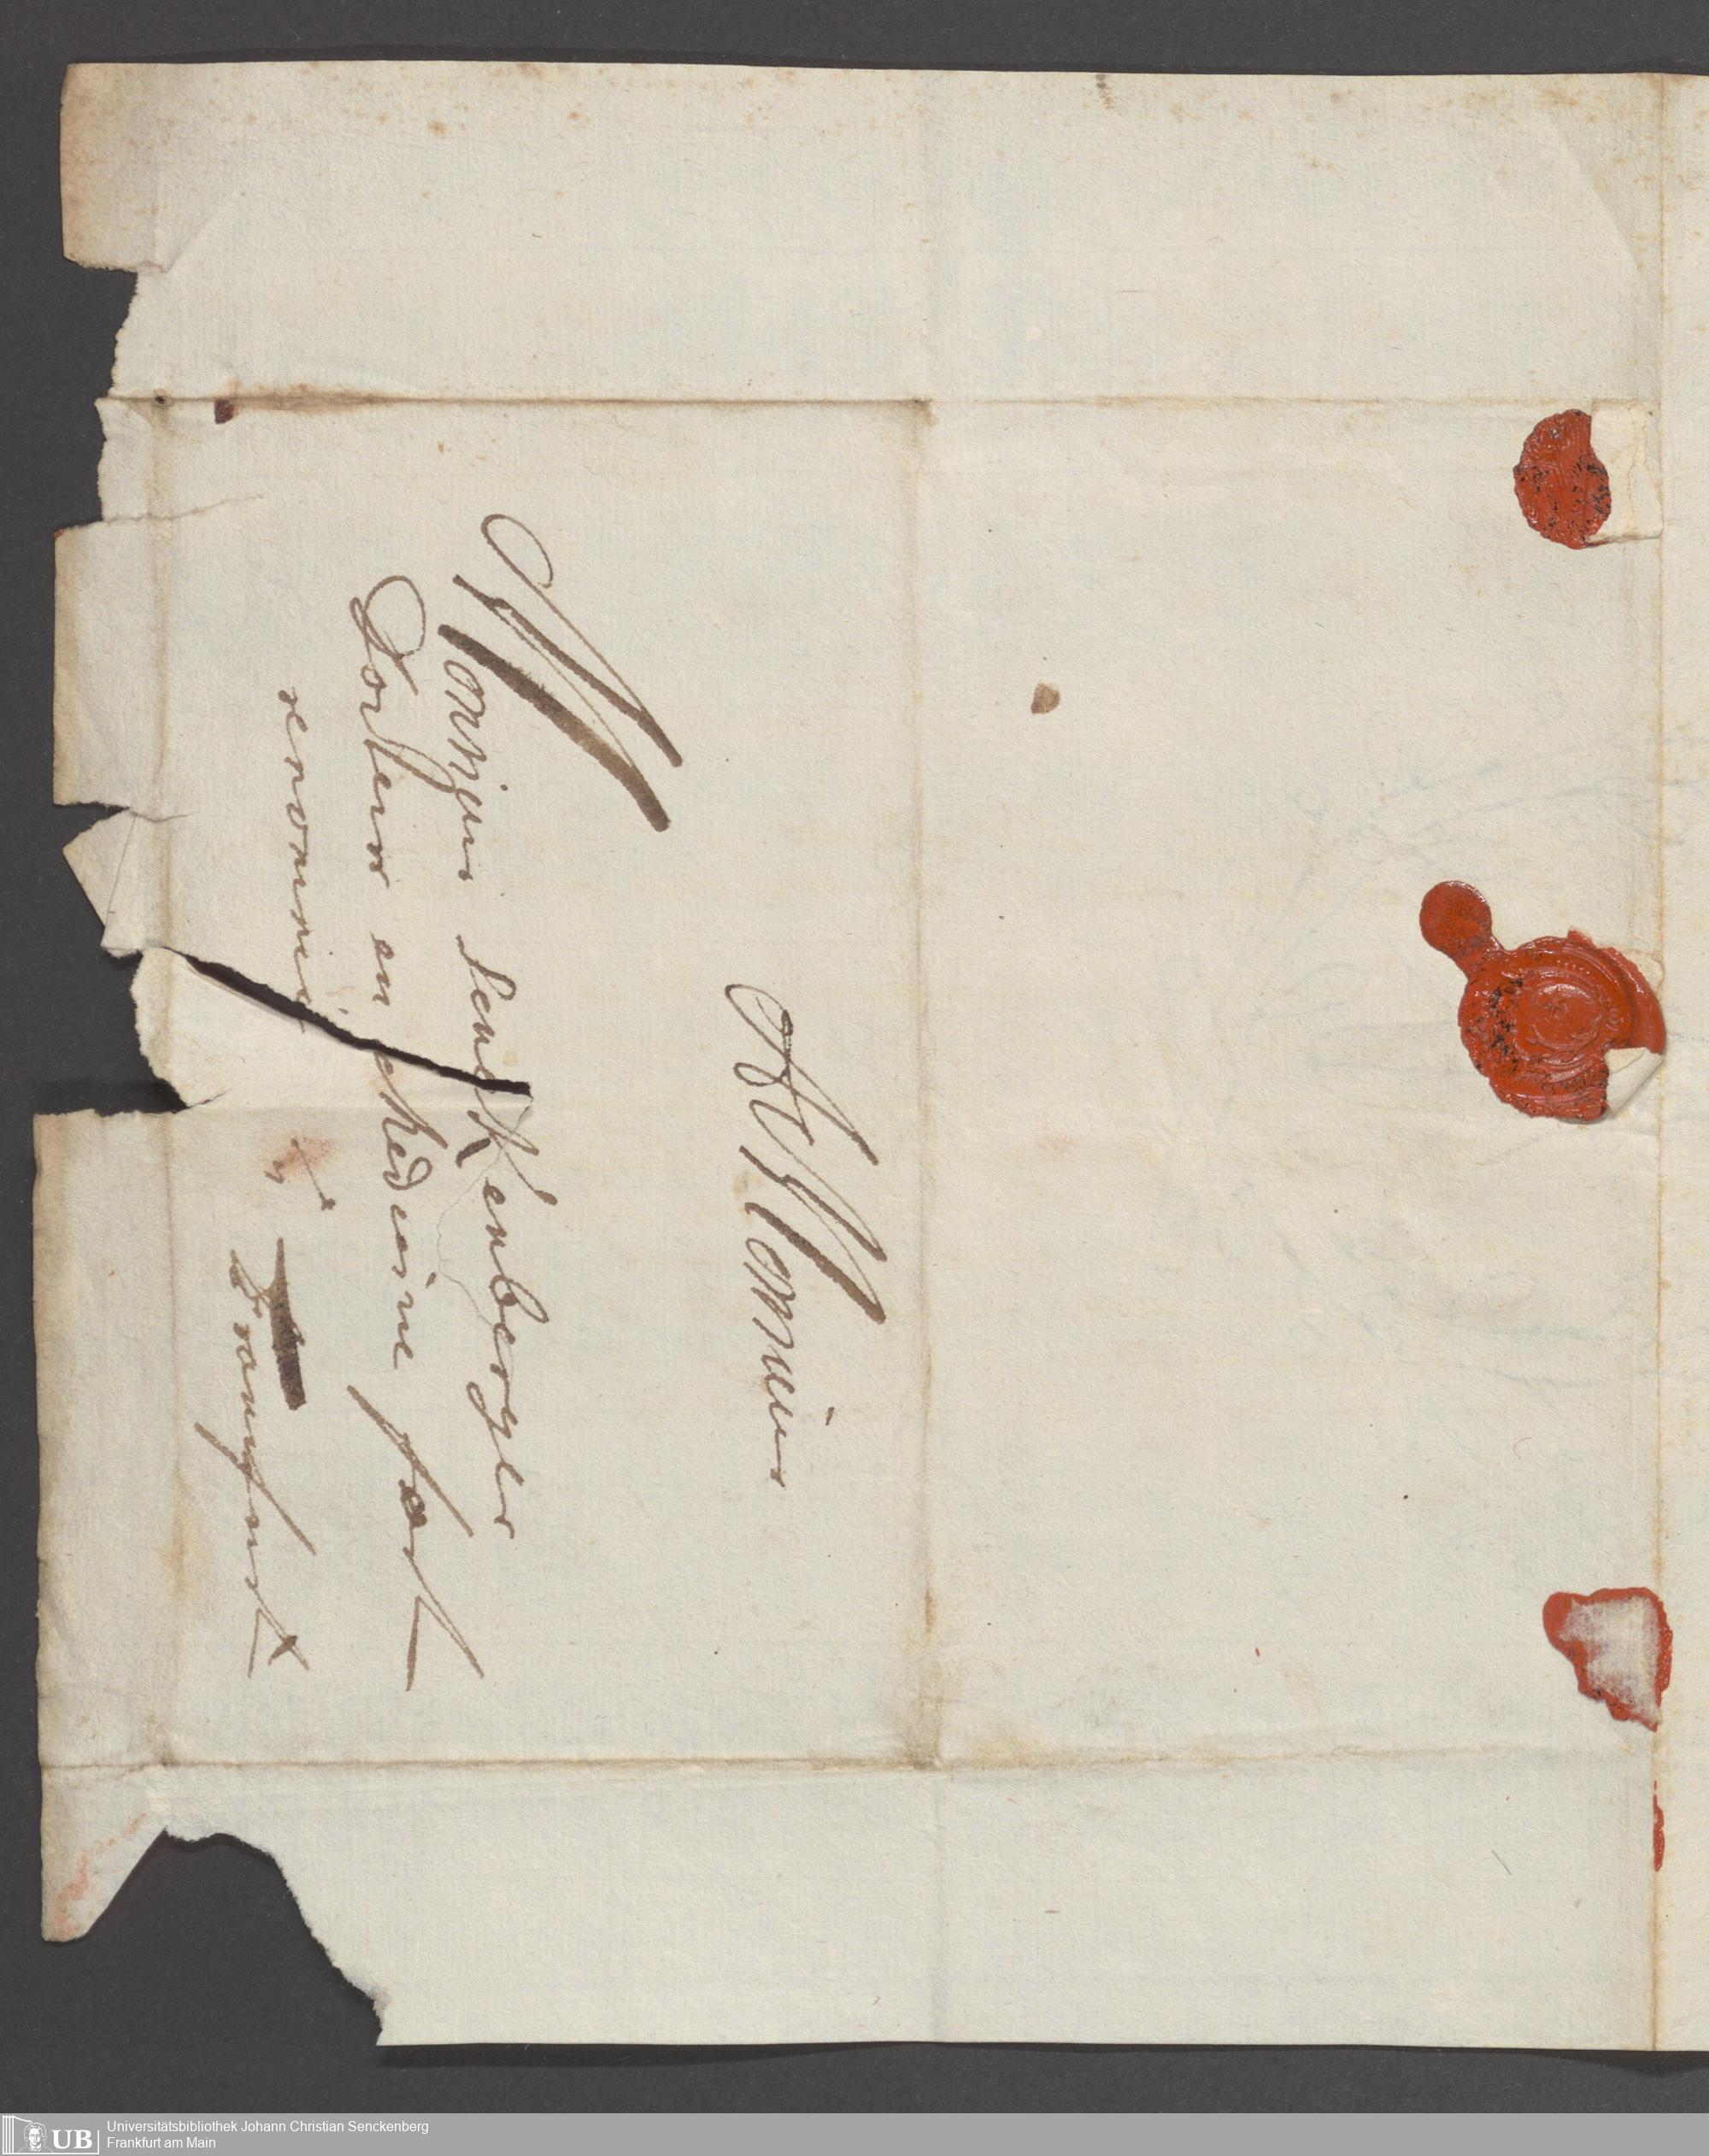 A Monsieur
Monsieur Senckenbergler
Docteur en Medecine fort
renommé
à
Francfurt
Universitätsbibliothek Johann Christian Senckenberg
Frankfurt am Main
UB